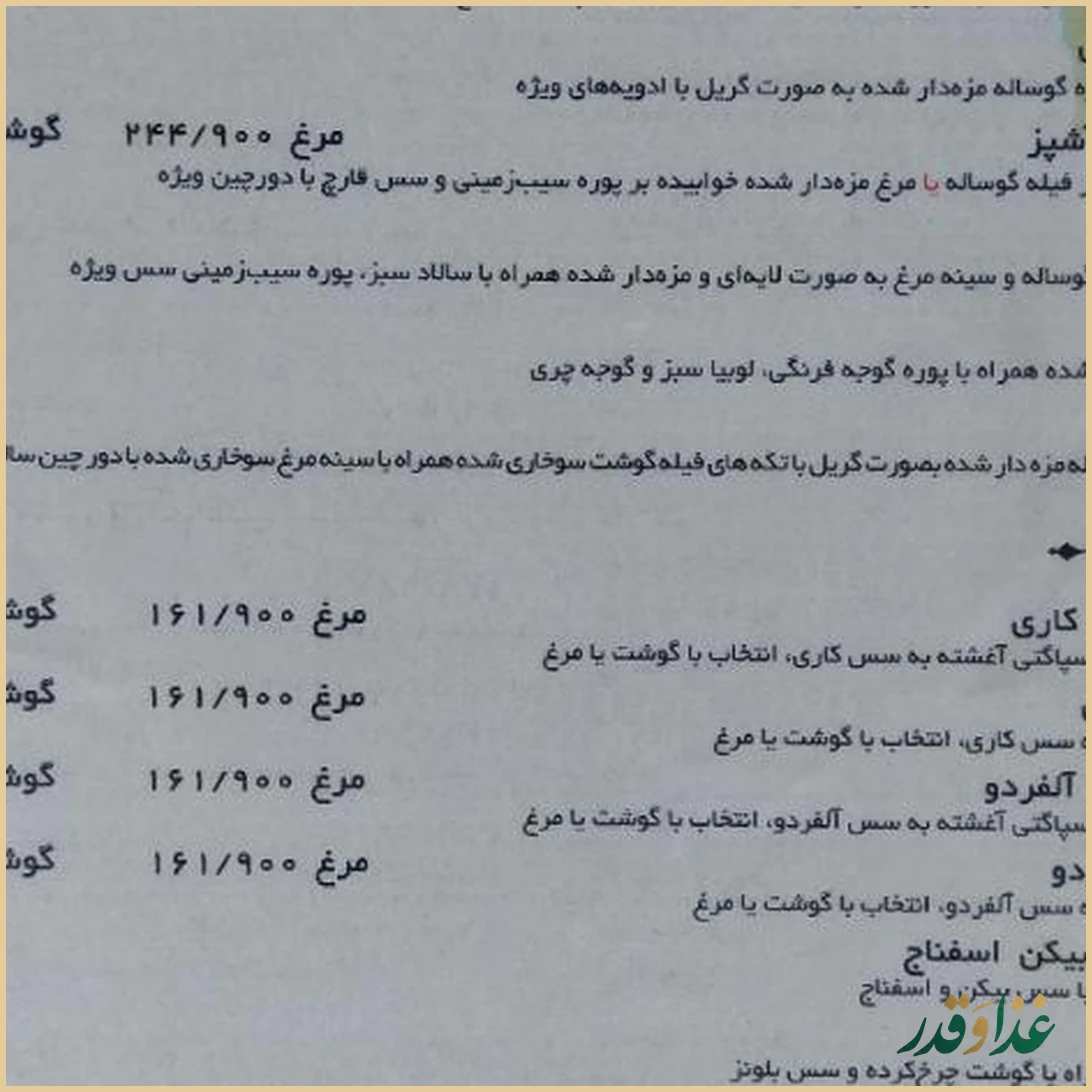 گوساله مزه‌دار شده به صورت گریل با ادویه‌های ویژه
مرغ ۲۴۴/۹۰۰
فیله گوساله یا مرغ مزه‌دار شده خوابیده بر پوره سیب‌زمینی و سس قارچ با دورچین ویژه
و سینه مرغ به صورت لایه‌ای و مزه‌دار شده همراه با سالاد سبز، پوره سیب‌زمینی سس ویژه
شده همراه با پوره گوجه فرنگی، لوبیا سبز و گوجه چری
مزه دار شده بصورت گریل با تکه های فیله گوشت سوخاری شده همراه با سینه مرغ سوخاری شده با دور چین
کاری مرغ ۱۶۱/۹۰۰
سپاگتی آغشته به سس کاری، انتخاب با گوشت یا مرغ
مرغ ۱۶۱/۹۰۰
سس کاری، انتخاب با گوشت یا مرغ
آلفردو مرغ ۱۶۱/۹۰۰
سپاگتی آغشته به سس آلفردو، انتخاب با گوشت یا مرغ
مرغ ۱۶۱/۹۰۰
سس آلفردو، انتخاب با گوشت یا مرغ
بیکن اسفناج
سس بیکن و اسفناج
غذا و قدر
با گوشت چرخ‌کرده و سس بلونز